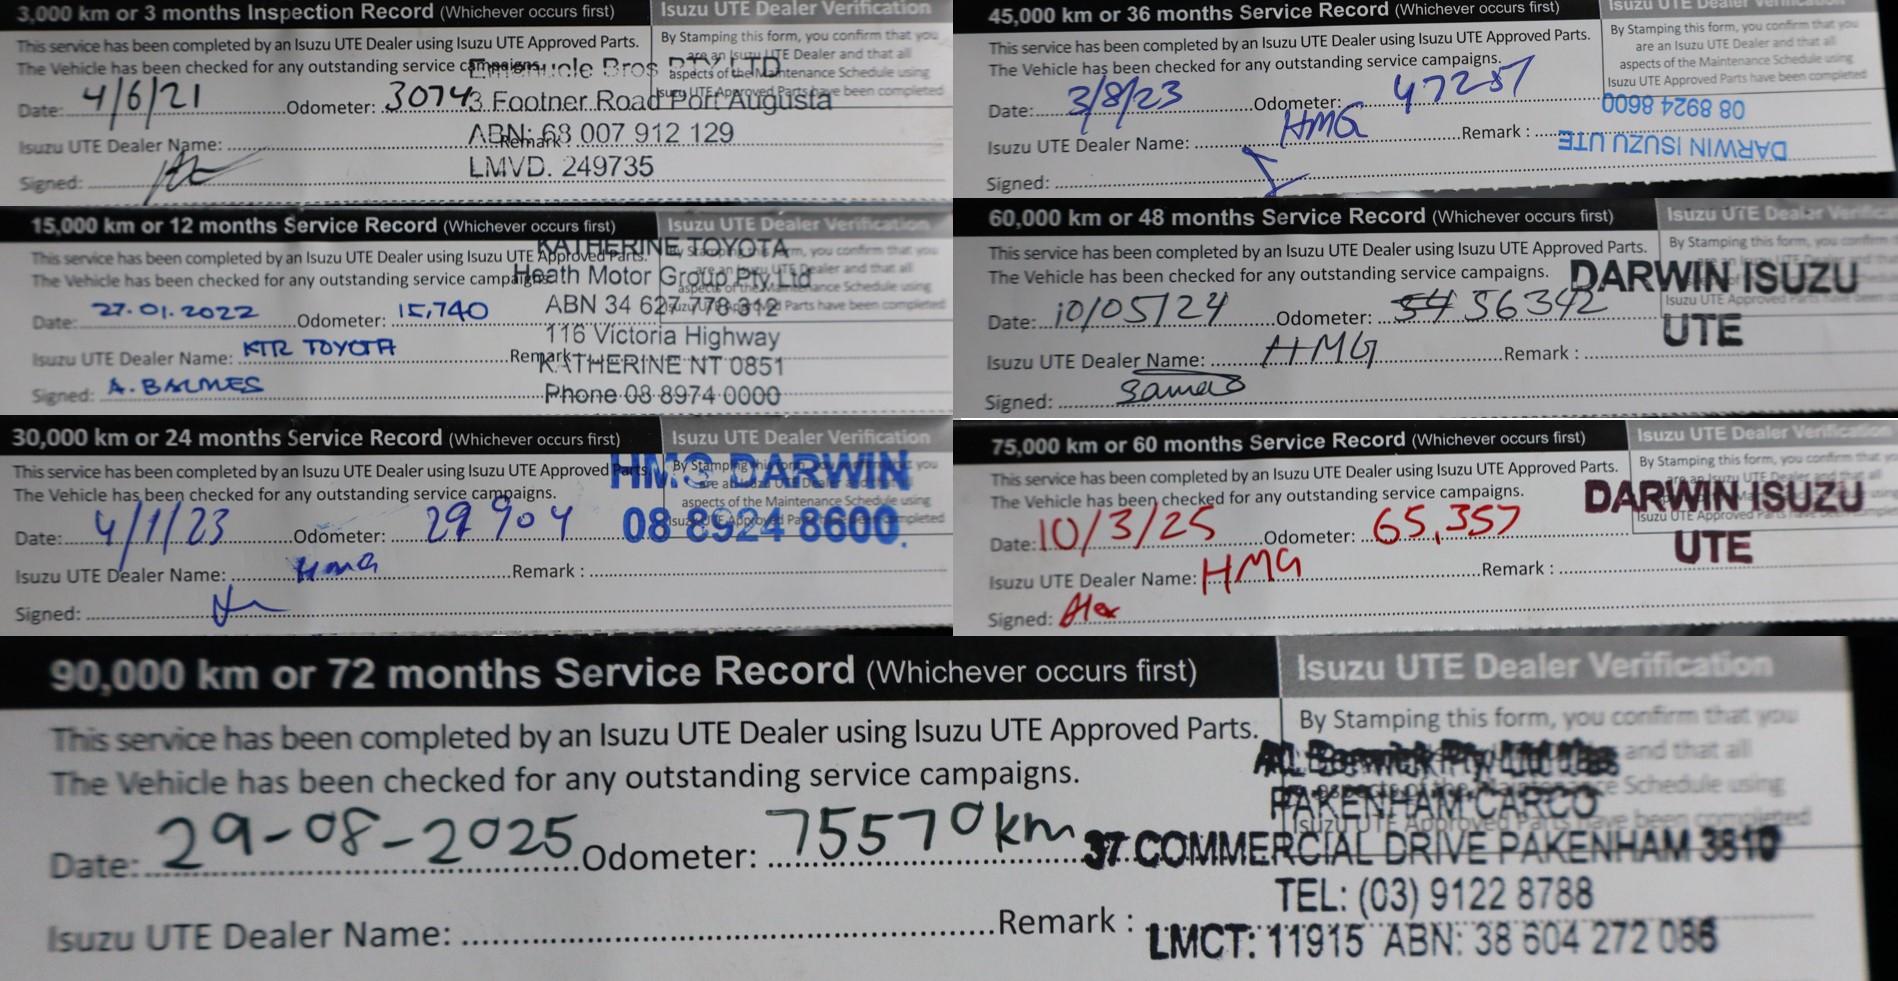 3,000 km or 3 months Inspection Record (Whichever occurs first)
Isuzu UTE Dealer Verification
This service has been completed by an Isuzu UTE Dealer using Isuzu UTE Approved Parts.
The Vehicle has been checked for any outstanding service campaigns.
By Stamping this form, you confirm that you
are an Isuzu UTE Dealer and that all
aspects of the Maintenance Schedule using
Isuzu UTE Approved Parts have been completed
Bros PTY LTD
Date: 4/6/21 Odometer: 3074
3 Footner Road Port Augusta
ABN: 68 007 912 129
Isuzu UTE Dealer Name: Remark
LMVD. 249735
Signed:
15,000 km or 12 months Service Record (Whichever occurs first)
Isuzu UTE Dealer Verification
This service has been completed by an Isuzu UTE Dealer using Isuzu UTE Approved Parts.
The Vehicle has been checked for any outstanding service campaigns.
By Stamping this form, you confirm that you
are an Isuzu UTE Dealer and that all
aspects of the Maintenance Schedule using
Isuzu UTE Approved Parts have been completed
KATHERINE TOYOTA
Heath Motor Group Pty Ltd
ABN 34 627 778 312
116 Victoria Highway
KATHERINE NT 0851
Phone 08 8974 0000
Date: 27.01.2022 Odometer: 15,740
Isuzu UTE Dealer Name: KTR TOYOTA Remark
Signed: A. BALMES
30,000 km or 24 months Service Record (Whichever occurs first)
Isuzu UTE Dealer Verification
This service has been completed by an Isuzu UTE Dealer using Isuzu UTE Approved Parts.
The Vehicle has been checked for any outstanding service campaigns.
By Stamping this form, you
aspects of the Maintenance Schedule using
Isuzu UTE Approved Parts completed
HMG DARWIN
08 8924 8600.
Date: 4/1/23 Odometer: 29904
Isuzu UTE Dealer Name: HMG Remark :
Signed:
45,000 km or 36 months Service Record (Whichever occurs first)
Isuzu UTE Dealer Verification
This service has been completed by an Isuzu UTE Dealer using Isuzu UTE Approved Parts.
The Vehicle has been checked for any outstanding service campaigns.
By Stamping this form, you confirm that you
are an Isuzu UTE Dealer and that all
aspects of the Maintenance Schedule using
Isuzu UTE Approved Parts have been completed
Date: 3/8/23 Odometer: 47257
08 8924 8600
Isuzu UTE Dealer Name: HMG Remark :
DARWIN ISUZU UTE
Signed:
60,000 km or 48 months Service Record (Whichever occurs first)
Isuzu UTE Dealer Verification
This service has been completed by an Isuzu UTE Dealer using Isuzu UTE Approved Parts.
The Vehicle has been checked for any outstanding service campaigns.
By Stamping this form, you confirm
Isuzu UTE Approved Parts have been
DARWIN ISUZU
UTE
Date: 10/05/24 Odometer: 54 56342
Isuzu UTE Dealer Name: HMG Remark :
Signed:
75,000 km or 60 months Service Record (Whichever occurs first)
Isuzu UTE Dealer Verification
This service has been completed by an Isuzu UTE Dealer using Isuzu UTE Approved Parts.
The Vehicle has been checked for any outstanding service campaigns.
By Stamping this form, you confirm that
Isuzu UTE Approved
DARWIN ISUZU
UTE
Date: 10/3/25 Odometer: 65,357
Isuzu UTE Dealer Name: HMG Remark :
Signed: Alex
90,000 km or 72 months Service Record (Whichever occurs first)
Isuzu UTE Dealer Verification
This service has been completed by an Isuzu UTE Dealer using Isuzu UTE Approved Parts.
The Vehicle has been checked for any outstanding service campaigns.
By Stamping this form, you confirm that you
and that all
Schedule using
Isuzu UTE Approved Parts have been completed
PAKENHAM CARCO
37 COMMERCIAL DRIVE PAKENHAM 3810
TEL: (03) 9122 8788
LMCT: 11915 ABN: 38 604 272 086
Date: 29-08-2025 Odometer: 75570km
Isuzu UTE Dealer Name: Remark :